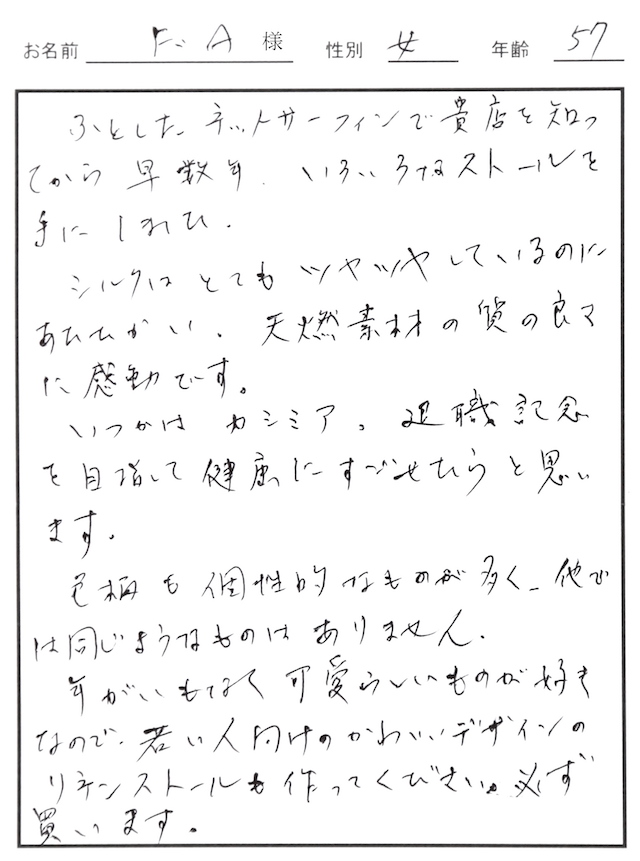 お名前 F・A 様 性別 女 年齢 57
ふとしたネットサーフィンで貴店を知っ
てから早数年、いろいろなストールを
手にしました。
シルクはとてもツヤツヤしているのに
あたたかい。天然素材の質の良さ
に感動です。
いつかはカシミア。退職記念
を目指して健康にすごせたらと思い
ます。
色柄も個性的なものが多く、他で
は同じようなものはありません。
年がいもなく可愛らしいものが好き
なので、若い人向けのかわいいデザインの
リネンストールも作ってください。必ず
買います。